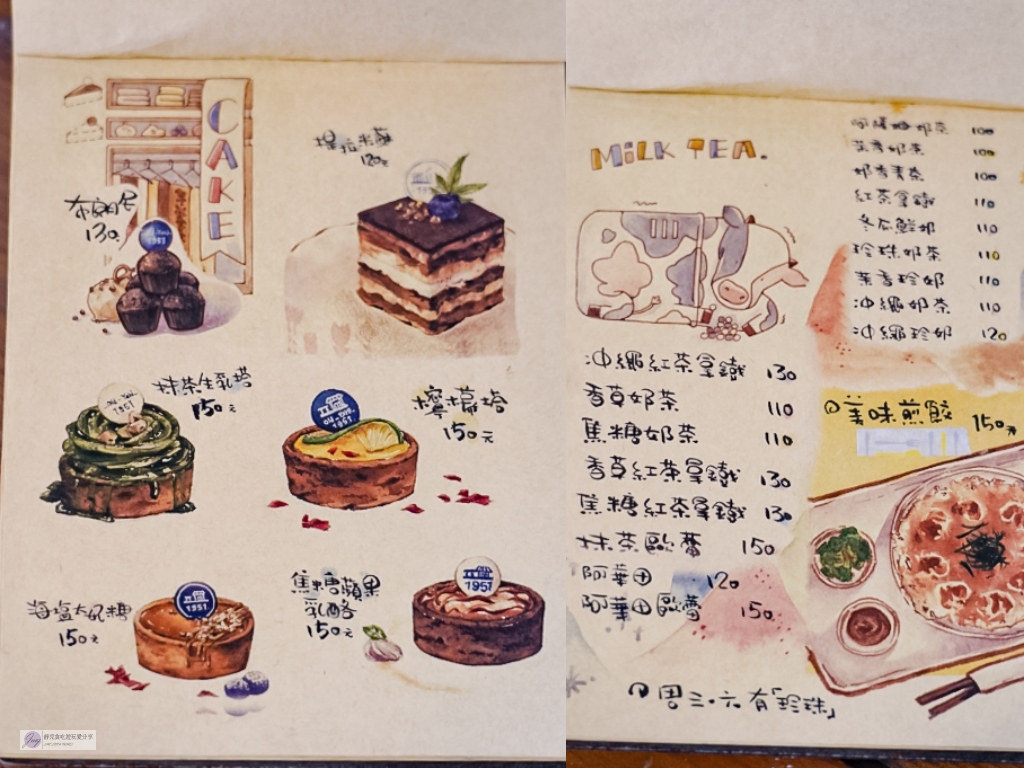 CAKE
布朗尼
130
提拉米蘇
120元
抹茶生乳塔
150元
檸檬塔
150元
海塩太妃糖
150元
焦糖蘋果
乳酪
150元
1951
1951
1951
1951
1957
MILK TEA.
阿薩姆奶茶 100
茉香奶茶 100
奶香青茶 100
紅茶拿鐵 110
冬瓜鮮奶 110
珍珠奶茶 110
茉香珍奶 110
沖繩奶茶 110
沖繩珍奶 120
沖繩紅茶拿鐵 130
香草奶茶 110
焦糖奶茶 110
香草紅茶拿鐵 130
焦糖紅茶拿鐵 130
抹茶歐蕾 150
阿華田 120
阿華田歐蕾 150
美味煎餃 150元
周三.六有「珍珠」